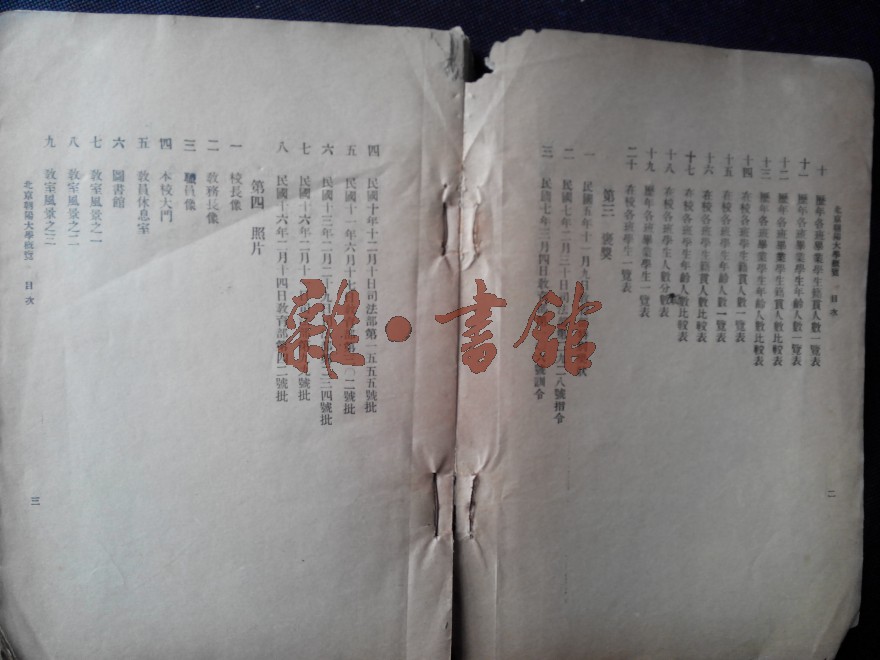 北京朝陽大學概覽 目次
十 歷年各班畢業學生籍貫人數一覽表
十一 歷年各班畢業學生年齡人數一覽表
十二 歷年各班畢業學生籍貫人數比較表
十三 歷年各班畢業學生年齡人數比較表
十四 在校各班學生籍貫人數一覽表
十五 在校各班學生年齡人數一覽表
十六 在校各班學生籍貫人數比較表
十七 在校各班學生年齡人數比較表
十八 在校各班學生人數分表
十九 歷年各班畢業學生一覽表
二十 在校各班學生一覽表
第三 褒獎
一 民國五年十一月九日
二 民國七年二月三十日司法部第九二八號指令
三 民國七年三月四日教育部號訓令
二
四 民國十年十二月十日司法部第一五五五號批
五 民國十一年六月十七二號批
六 民國十三年二月二十九日三四號批
七 民國十六年二月十號批
八 民國十六年二月十四日教育部第四二號批
第四 照片
一 校長像
二 教務長像
三 職員像
四 本校大門
五 教員休息室
六 圖書館
七 教室風景之一
八 教室風景之二
九 教室風景之三
北京朝陽大學概覽 目次
三
雜·書館